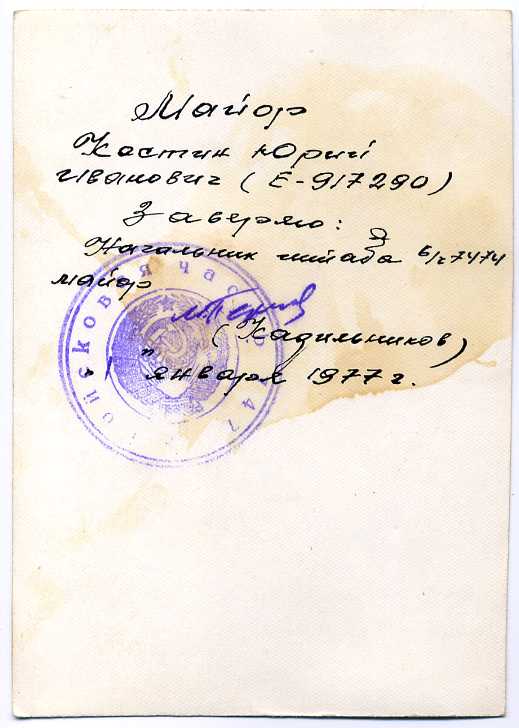 Майор
Костин Юрий
Иванович (Ё-917290)
Заверяю:
Начальник штаба в/ч 7474
майор
(Кадильников)
" января 1977 г.
войсковая час